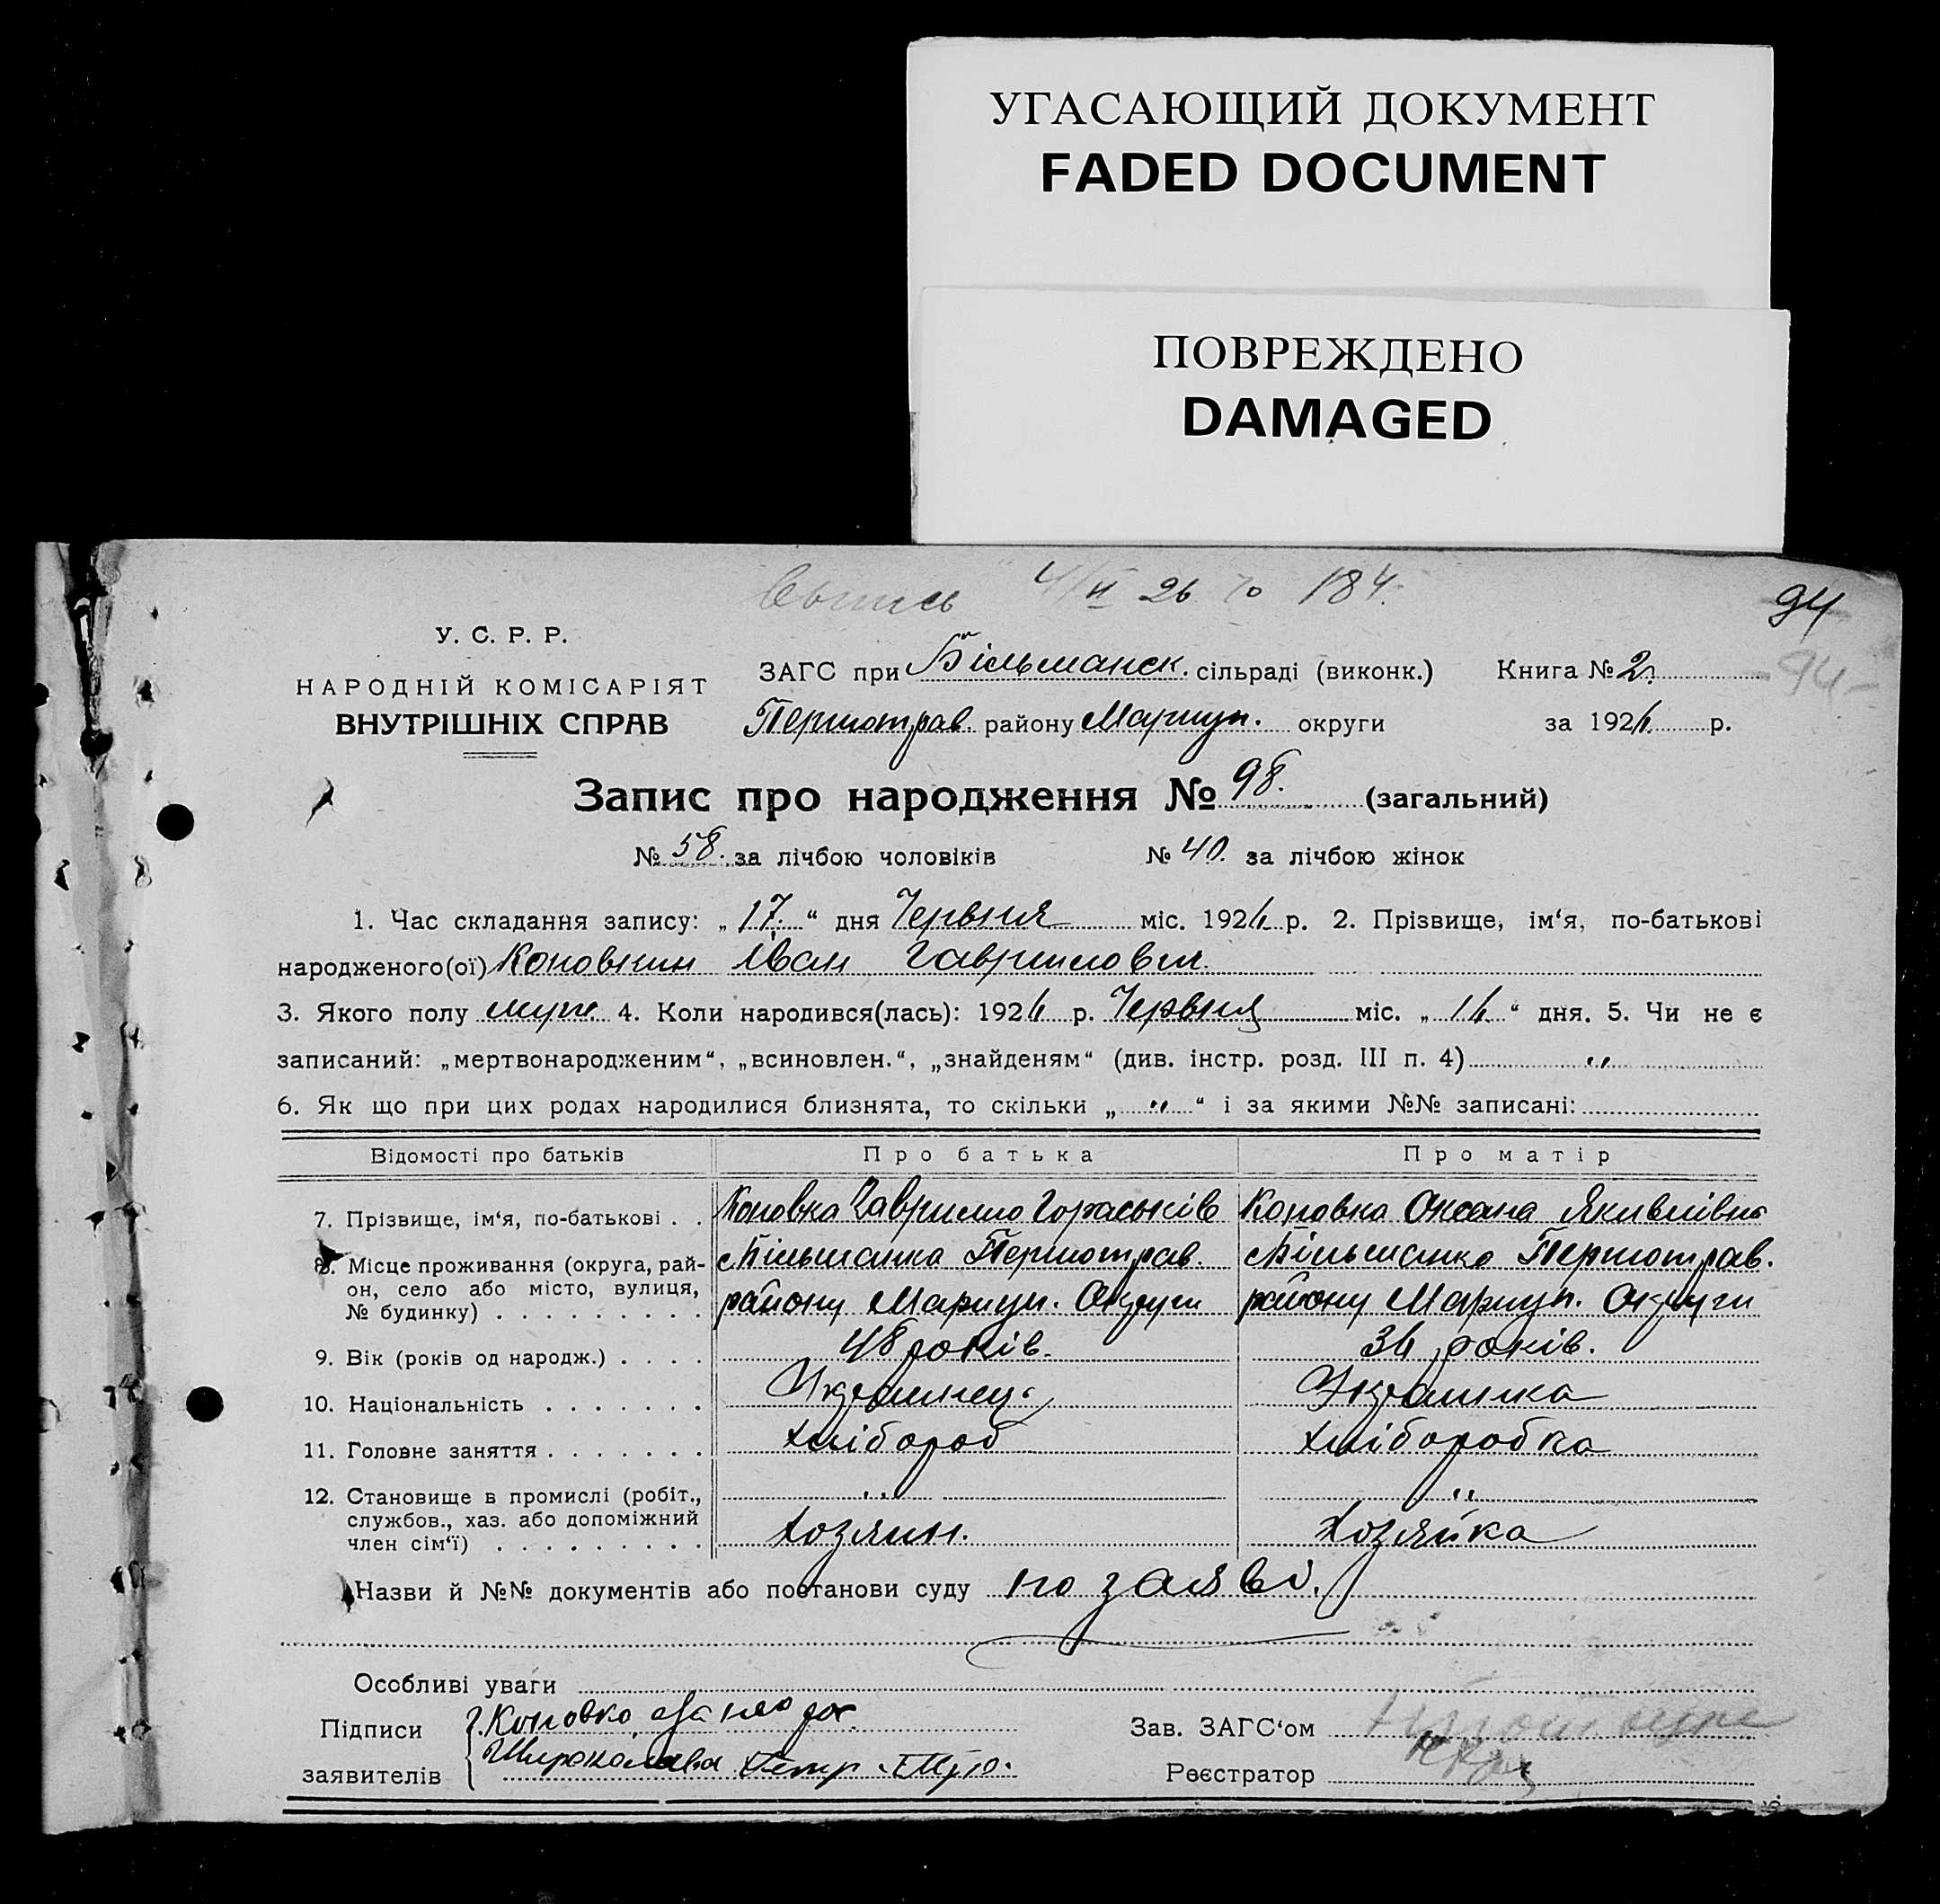 УГАСАЮЩИЙ ДОКУМЕНТ
FADED DOCUMENT
ПОВРЕЖДЕНО
DAMAGED
184.
94
У. С. Р. Р.
НАРОДНІЙ КОМІСАРІЯТ
ВНУТРІШНІХ СПРАВ
ЗАГС при Більманск. сільраді (виконк.) Книга № 2.
94
Першотрав. району Маріуп. округи за 1926 р.
Запис про народження № 98. (загальний)
№ 58. за лічбою чоловіків № 40. за лічбою жінок
1. Час складання запису: „ 17. “ дня Червня міс. 1926 р. 2. Прізвище, ім‘я, по-батькові
народженого(ої) Іван Гаврилович.
3. Якого полу муж. 4. Коли народився(лась): 1926 р. Червня міс. „ 16. “ дня. 5. Чи не є
записаний: „мертвонародженим“, „всиновлен.“, „знайденям“ (див. інстр. розд. III п. 4) „
6. Як що при цих родах народилися близнята, то скільки „ „ “ і за якими №№ записані:
Відомості про батьків Про батька Про матір
7. Прізвище, ім‘я, по-батькові . . Коновка Гаврило Коновка Оксана Якивлівна
8. Місце проживання (округа, рай- с Більманка Першотрав. с Більманка Першотрав.
он, село або місто, вулиця,
№ будинку) . . . . . . . . . району Маріуп. Округи району Маріуп. Округи
9. Вік (років од народж.) . . . . 48 років. 36 років.
10. Національність . . . . . . . Украинець Украинка
11. Головне заняття . . . . . . . хлібороб хліборобка
12. Становище в промислі (робіт., „ „
службов., хаз. або допоміжний
член сім‘ї) . . . . . . . . . хозяин. хозяйка
Назви й №№ документів або постанови суду по заяві.
Особливі уваги
Підписи Г. Коновко Зав. ЗАГС‘ом
заявителів Реєстратор